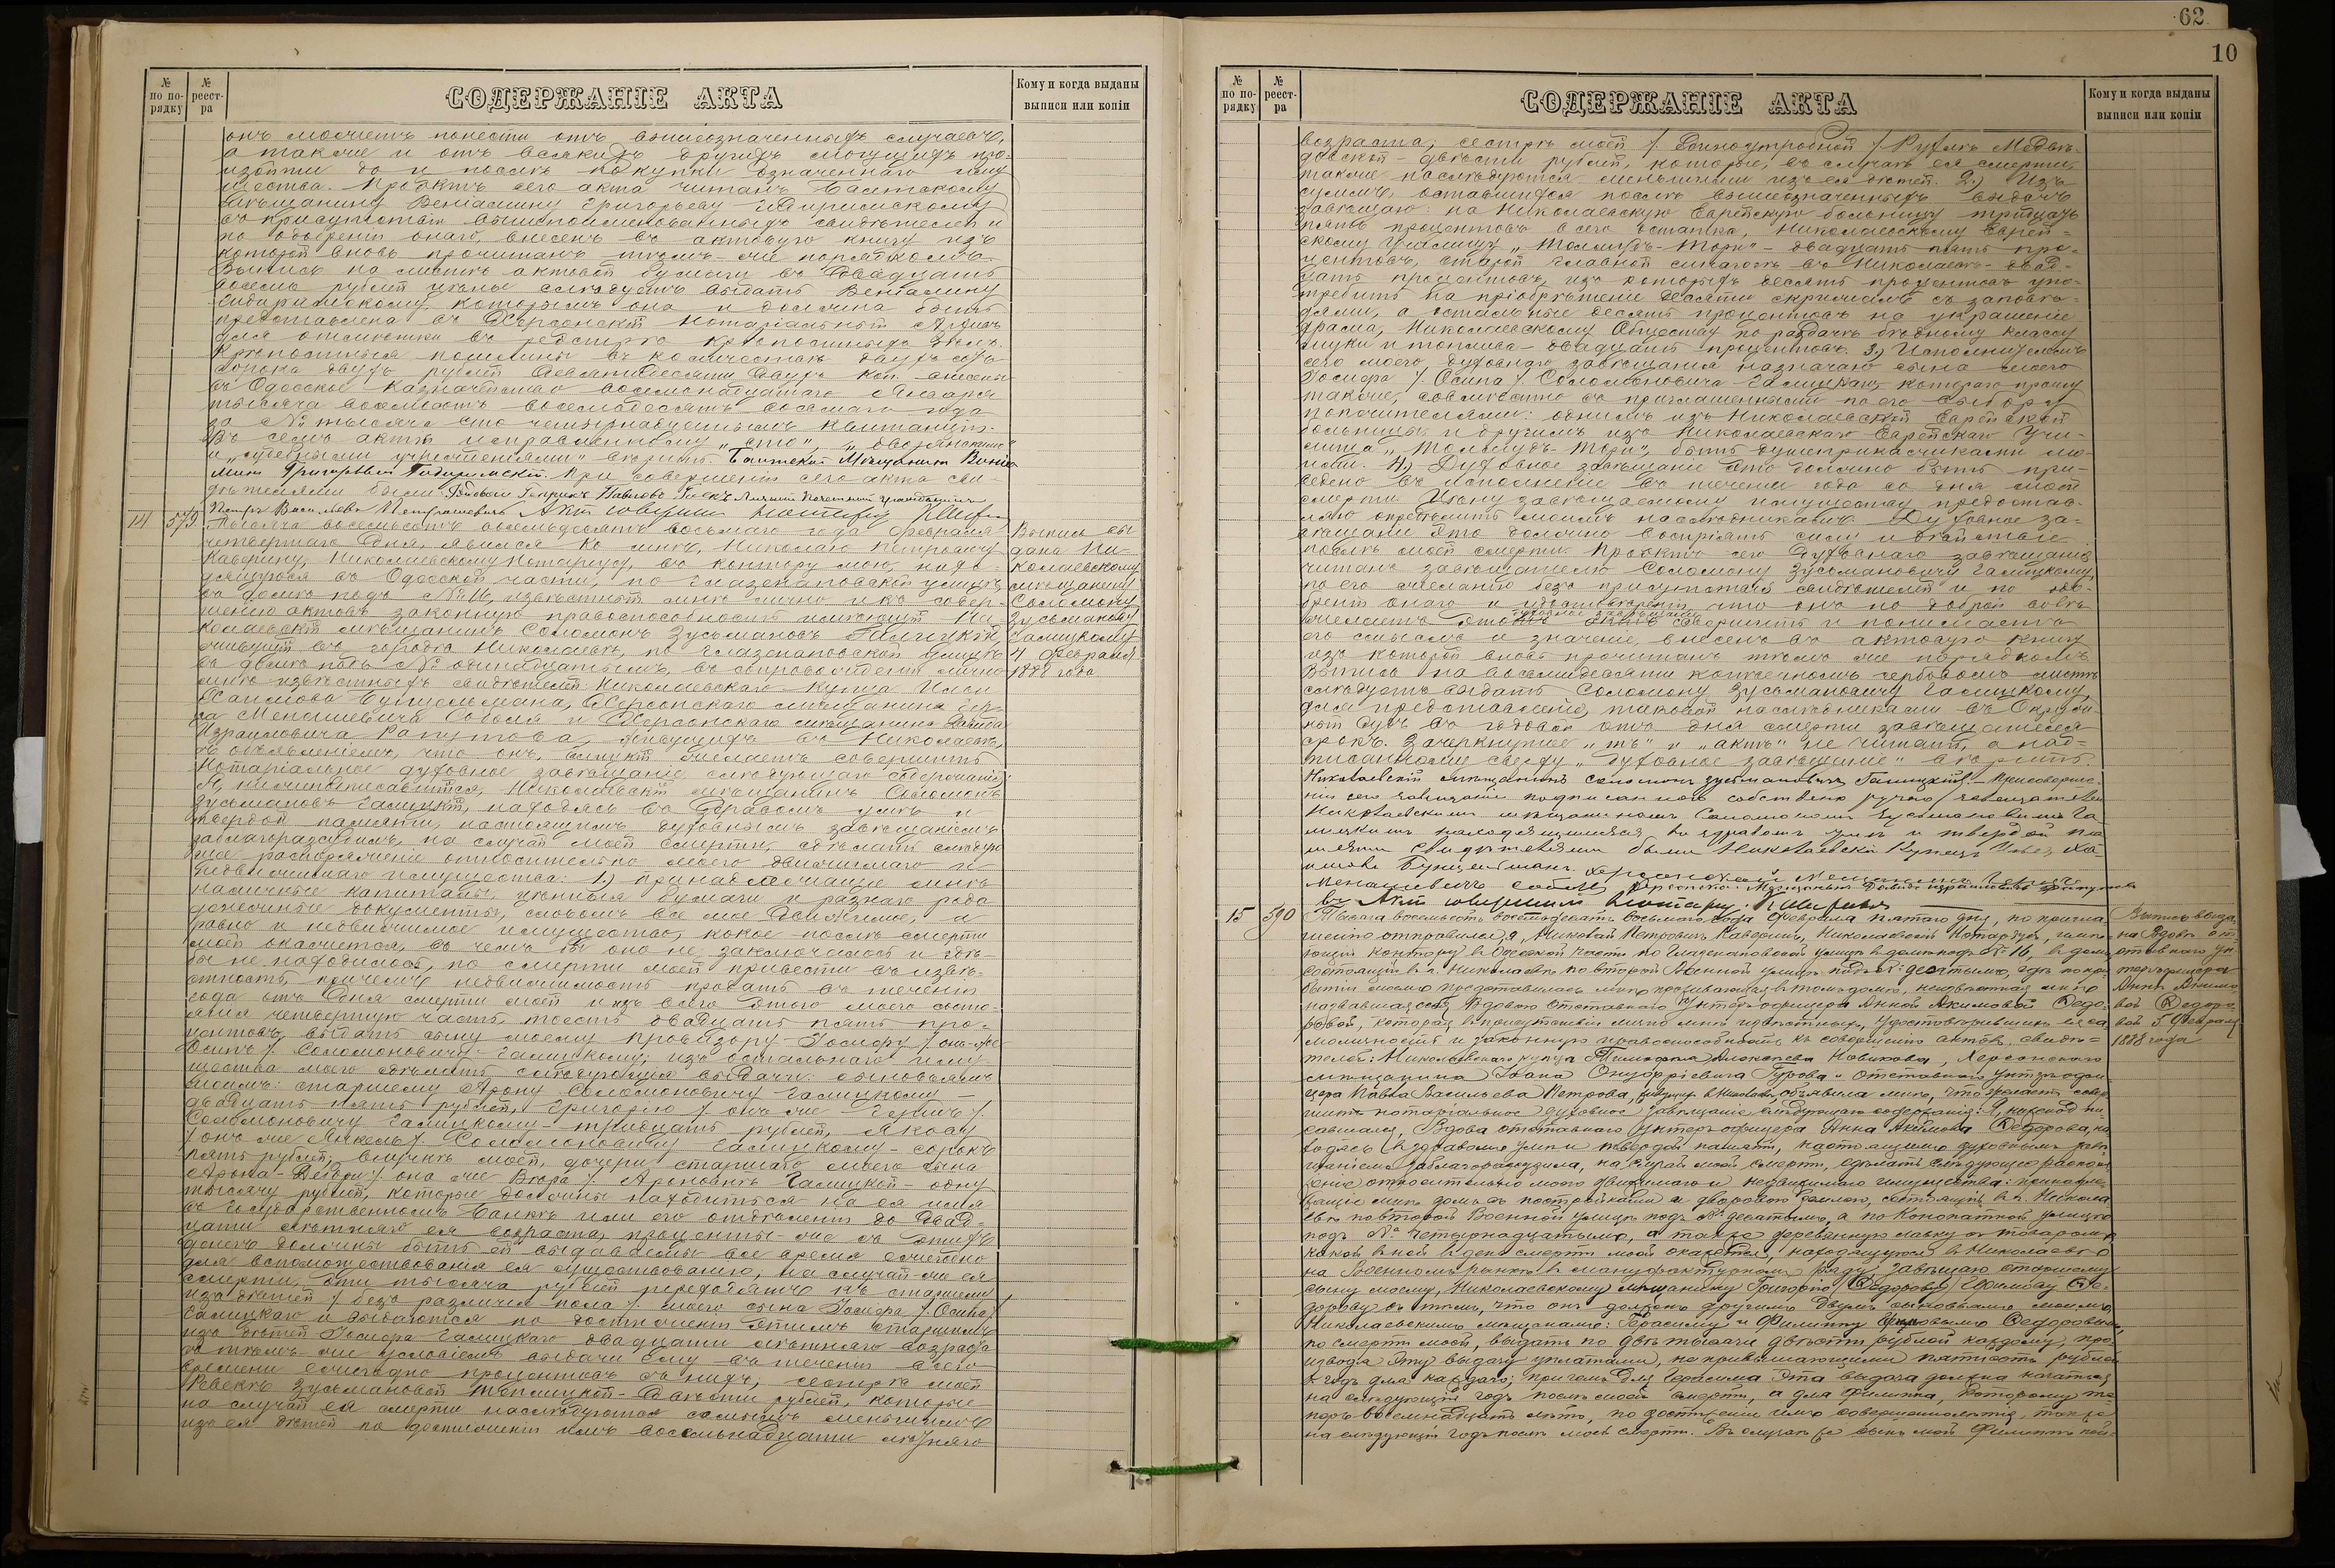 62
10
№ по порядку
№ реестра
СОДЕРЖАНІЕ АКТА
Кому и когда выданы выписи или копіи
онъ можетъ понести отъ вышеозначенныхъ случаевъ,
а также и отъ всякихъ другихъ могущихъ про-
изойти до и послѣ покупки означеннаго иму
щества. Проэктъ сего акта читанъ Балтскому
мѣщанину Веніамину Григорьеву
въ присутствіи вышепоименованныхъ свидѣтелей и
по одобреніи онаго, внесенъ въ актовую книгу изъ
которой вновь прочитанъ тѣмъ-же порядкомъ.
Выпись на листѣ актовой бумаги въ двадцать
восемь рублей цѣны слѣдуетъ выдать Веніамину
которымъ она и должна быть
представлена въ Херсонскій Нотаріальный Архивъ
для отмѣтки въ реестрѣ крѣпостныхъ дѣлъ.
Крѣпостныя пошлины въ количествѣ двухъ сотъ
сорока двухъ рублей девяносто двухъ коп. внесены
въ Одесское Казначейство восемнадцатаго Января
тысяча восемьсотъ восемьдесятъ восьмаго года
за № тысяча сто четырнадцатымъ квитанціи.
Въ семъ актѣ исправленному „это“, „дворянскіе“
и „судебными учрежденіями“ вѣрить. Балтскій Мѣщанинъ Веніа
минъ Григорьевъ При совершеніи сего акта сви-
дѣтелями были: Личный Почетный гражданинъ
Петръ Васильевъ Актъ совершилъ Нотаріусъ
14 579 Тысяча восемьсотъ восемьдесятъ восьмаго года Февраля
четвертаго дня, явился ко мнѣ, Николаю Петровичу
Каверину, Николаевскому Нотаріусу, въ контору мою, нахо-
дящуюся въ Одесской части, по Глазенаповской улицѣ,
въ домѣ подъ № 16, извѣстный мнѣ лично и къ совер-
шенію актовъ законную правоспособность имѣющій Ни-
колаевскій мѣщанинъ Соломонъ Зусьмановъ Галицкій,
живущій въ городѣ Николаевѣ, по Глазенаповской улицѣ
въ домѣ подъ № одинадцатымъ, въ сопровожденіи лично
мнѣ извѣстныхъ свидѣтелей: Николаевскаго Купца Иосел
Хаимова Бунцельмана, Херсонскаго мѣщанина Гер-
ша Менашевича Собеля и Херсонскаго мѣщанина Давида
Израилевича Рапутова, живущихъ въ Николаевѣ,
съ объявленіемъ, что онъ, Галицкій желаетъ совершить
Нотаріальное духовное завѣщаніе слѣдующаго содержанія:
Я, нижеподписавшійся, Николаевскій мѣщанинъ Соломонъ
Зусьмановъ Галицкій, находясь въ здравомъ умѣ и
твердой памяти, настоящимъ духовнымъ завѣщаніемъ
заблагоразсудилъ, на случай моей смерти, сдѣлать слѣдую
щее распоряженіе относительно моего движимаго и
недвижимаго имущества: 1.) принадлежащіе мнѣ
наличные капиталы, цѣнныя бумаги и разнаго рода
денежные документы, словомъ все мое движимое, а
равно и недвижимое имущество, какое послѣ смерти
моей окажется, въ чемъ бы оно не заключалось и гдѣ-
бы не находилось, по смерти моей привести въ извѣ-
стность, причемъ недвижимость продать въ теченіи
года отъ дня смерти моей и изъ всего этого моего состо-
янія четвертую часть, тоесть двадцать пять про-
центовъ, выдать сыну моему провизору Іосифу / онъ-же
Осипъ /. Соломоновичу Галицкому; изъ остальнаго иму-
щества моего сдѣлать слѣдующія выдачи: сыновьямъ
моимъ: старшему Арону Соломоновичу Галицкому -
двадцать пять рублей, Григорію / онъ же Гершъ /.
Соломоновичу Галицкому - тридцать рублей, Якову
/ онъ же Янкель /. Соломоновичу Галицкому - сорокъ
пять рублей; внучкѣ моей, дочери старшаго моего сына
Арона - Деборѣ /. она же Вѣра /. Ароновнѣ Галицкой - одну
тысячу рублей, которые должны находиться на ея имя
въ Государственномъ Банкѣ или его отдѣленіи до двад-
цати лѣтняго ея возраста, проценты-же съ этихъ
денегъ должны быть ей выдаваемы все время ежегодно
для вспомоществованія ея существованію; на случай-же ея
смерти, эти тысяча рублей переходятъ къ старшему
изъ дѣтей / безъ различія пола /. моего сына Іосифа / Осипа /
Галицкаго и выдаются по достиженіи этимъ старшимъ
изъ дѣтей Іосифа Галицкаго двадцати лѣтняго возраста
съ тѣмъ-же условіемъ выдачи ему въ теченіи всего
времени ежегодно процентовъ съ нихъ; сестрѣ моей
Ревеккѣ Зусьмановой - двѣсти рублей, которые
на случай ея смерти наслѣдуются самымъ меньшимъ
изъ ея дѣтей по достиженіи имъ восемьнадцати лѣтняго
Выпись вы
дана Ни-
колаевскому
мѣщанину
Соломону
Зусьманову
Галицкому
4 Февраля
1888 года
№ по порядку
№ реестра
СОДЕРЖАНІЕ АКТА
Кому и когда выданы выписи или копіи
возраста; сестрѣ моей /. Единоутробной / Рухлѣ
двѣсти рублей, которые, въ случаѣ ея смерти,
также наслѣдуются меньшими изъ ея дѣтей. 2.) Изъ
суммъ, оставшихся послѣ вышеозначенныхъ выдачъ
завѣщаю: на Николаевскую Еврейскую больницу тридцать
пять процентовъ всего остатка, Николаевскому Еврей-
скому училищу „Толмудъ-Тора“ - двадцать пять про-
центовъ, старой главной синагогѣ въ Николаевѣ - двад-
цать процентовъ, изъ которыхъ десять процентовъ упо-
требить на пріобрѣтеніе десяти скрижалей съ заповѣ-
дями, а остальные десять процентовъ на украшеніе
храма, Николаевскому Обществу по раздачѣ бѣдному классу
муки и топлива - двадцать процентовъ. 3.) Исполнителемъ
сего моего духовнаго завѣщанія назначаю сына моего
Іосифа /. Осипа /. Соломоновича Галицкаго, котораго прошу
также, совмѣстно съ приглашенными по его выбору
попечителями: однимъ изъ Николаевской Еврейской
больницы и другимъ изъ Николаевскаго Еврейскаго Учи-
лища „Толмудъ-Тора“, быть душеприкащиками мо-
ими. 4.) Духовное завѣщаніе это должно быть при-
ведено въ исполненіе въ теченіи года со дня моей
смерти. Цѣну завѣщаемому имуществу предостав-
ляю опредѣлить моимъ наслѣдникамъ. Духовное за-
вѣщаніе это должно воспріять силу и дѣйствіе
послѣ моей смерти. Проэктъ сего духовнаго завѣщанія
читанъ завѣщателю Соломону Зусьмановичу Галицкому,
по его желанію безъ присутствія свидѣтелей и по одо-
бреніи онаго и удостовѣреніи, что онъ по доброй волѣ
духовное завѣщаніе
желаетъ этотъ актъ совершить и понимаетъ
его смыслъ и значеніе, внесенъ въ актовую книгу
изъ которой вновь прочитанъ тѣмъ же порядкомъ
Выпись на восьмидесяти копѣечномъ гербовомъ листѣ
слѣдуетъ выдать Соломону Зусьмановичу Галицкому,
для представленія, таковой наслѣдниками въ Окруж-
ный Судъ въ годовой отъ дня смерти завѣщателя
срокъ. Зачеркнутое „тъ“ и „актъ“ не читать, а над-
писанному сверху „духовное завѣщаніе“ вѣрить.
Николаевскій мѣщанинъ Соломонъ Зусьмановичъ Галицкій. При совершe-
ніи сего завѣщанія подписаннаго собственноручно завѣщателемъ
Николаевскимъ мѣщаниномъ Соломономъ Зусьмановымъ Га-
лицкимъ находящимся въ здравомъ умѣ и твердой па-
мяти свидѣтелями были Николаевскій Купецъ Иосел Ха-
имовъ Бунцельманъ. Херсонскій Мещанинъ Гершъ
Менашевичъ Собель, Херсонскій Мѣщанинъ Давидъ Израилевичъ Рапутовъ
Актъ совершилъ Нотаріусъ
15 590 Тысяча восемьсотъ восемьдесятъ восьмаго года Февраля пятаго дня, по пригла
шенію отправился, я, Николай Петровичъ Каверинъ, Николаевскій Нотаріусъ, имѣю-
ющій контору въ Одесской части по Глазенаповской улицѣ въ домѣ подъ № 16, въ домъ
состоящій въ г. Николаевѣ по второй Военной улицѣ подъ № десятымъ, гдѣ по при-
бытіи моемъ представилась мнѣ проживающая въ томъ домѣ, неизвѣстная мнѣ
назвавшая себя Вдовою отставнаго Унтеръ-офицера Анной Акимовой Ѳедо-
ровой, которая въ присутствіи лично мнѣ извѣстныхъ, удостовѣрившихъ ея са
моличность и законную правоспособность къ совершенію актовъ, свидѣ-
телей: Николаевскаго купца Тимофея Алексѣева Новикова, Херсонскаго
мѣщанина Ивана Онуфріевича Гурова и отставнаго унтеръ-офи-
цера Павла Васильева Петрова, живущихъ въ Николаевѣ, объявила мнѣ, что желаетъ совер
шить нотаріальное духовное завѣщаніе слѣдующаго содержанія: Я, нижепод пи-
савшаяся, Вдова отставнаго Унтеръ-офицера Анна Акимова Ѳедорова, на
ходясь въ здравомъ умѣ и твердой памяти, настоящимъ духовнымъ завѣ
щаніемъ заблагоразсудила, на случай моей смерти, сдѣлать слѣдующее распоря
женіе относительно моего движимаго и недвижимаго имущества: принадле-
жащіе мнѣ домъ съ постройками и дворовою землею, состоящій въ г. Никола
евѣ по второй Военной улицѣ подъ № десятымъ, а по Конопатной улицѣ
подъ № четырнадцатымъ, а также деревянную лавку съ товаромъ
какой въ ней въ день смерти моей окажется, находящуюся въ Николаевѣ
на Военномъ рынкѣ въ мануфактурномъ ряду, завѣщаю старшему
сыну моему, Николаевскому мѣщанину Григорію (Ѳедорову) Ѳе-
дорову съ тѣмъ, что онъ долженъ другимъ двумъ сыновьямъ моимъ,
Николаевскимъ мѣщанамъ: Герасиму и Филиппу Ѳедоровымъ,
по смерти моей, выдать по двѣ тысячи двѣсти рублей каждому, про-
изводя эту выдачу уплатами, не превышающими пятисотъ рублей
въ годъ для каждаго; причемъ для Герасима эта выдача должна начаться
на слѣдующій годъ послѣ моей смерти, а для Филиппа, которому те
перь восемнадцать лѣтъ, по достиженіи имъ совершеннолѣтія, также
на слѣдующій годъ послѣ моей смерти. Въ случаѣ же сынъ мой Филиппъ
Выпись выда
на Вдовѣ от
ставнаго Ун
теръ-офицера
Аннѣ Акимо
вой Ѳедоро
вой 5 Февраля
1888 года